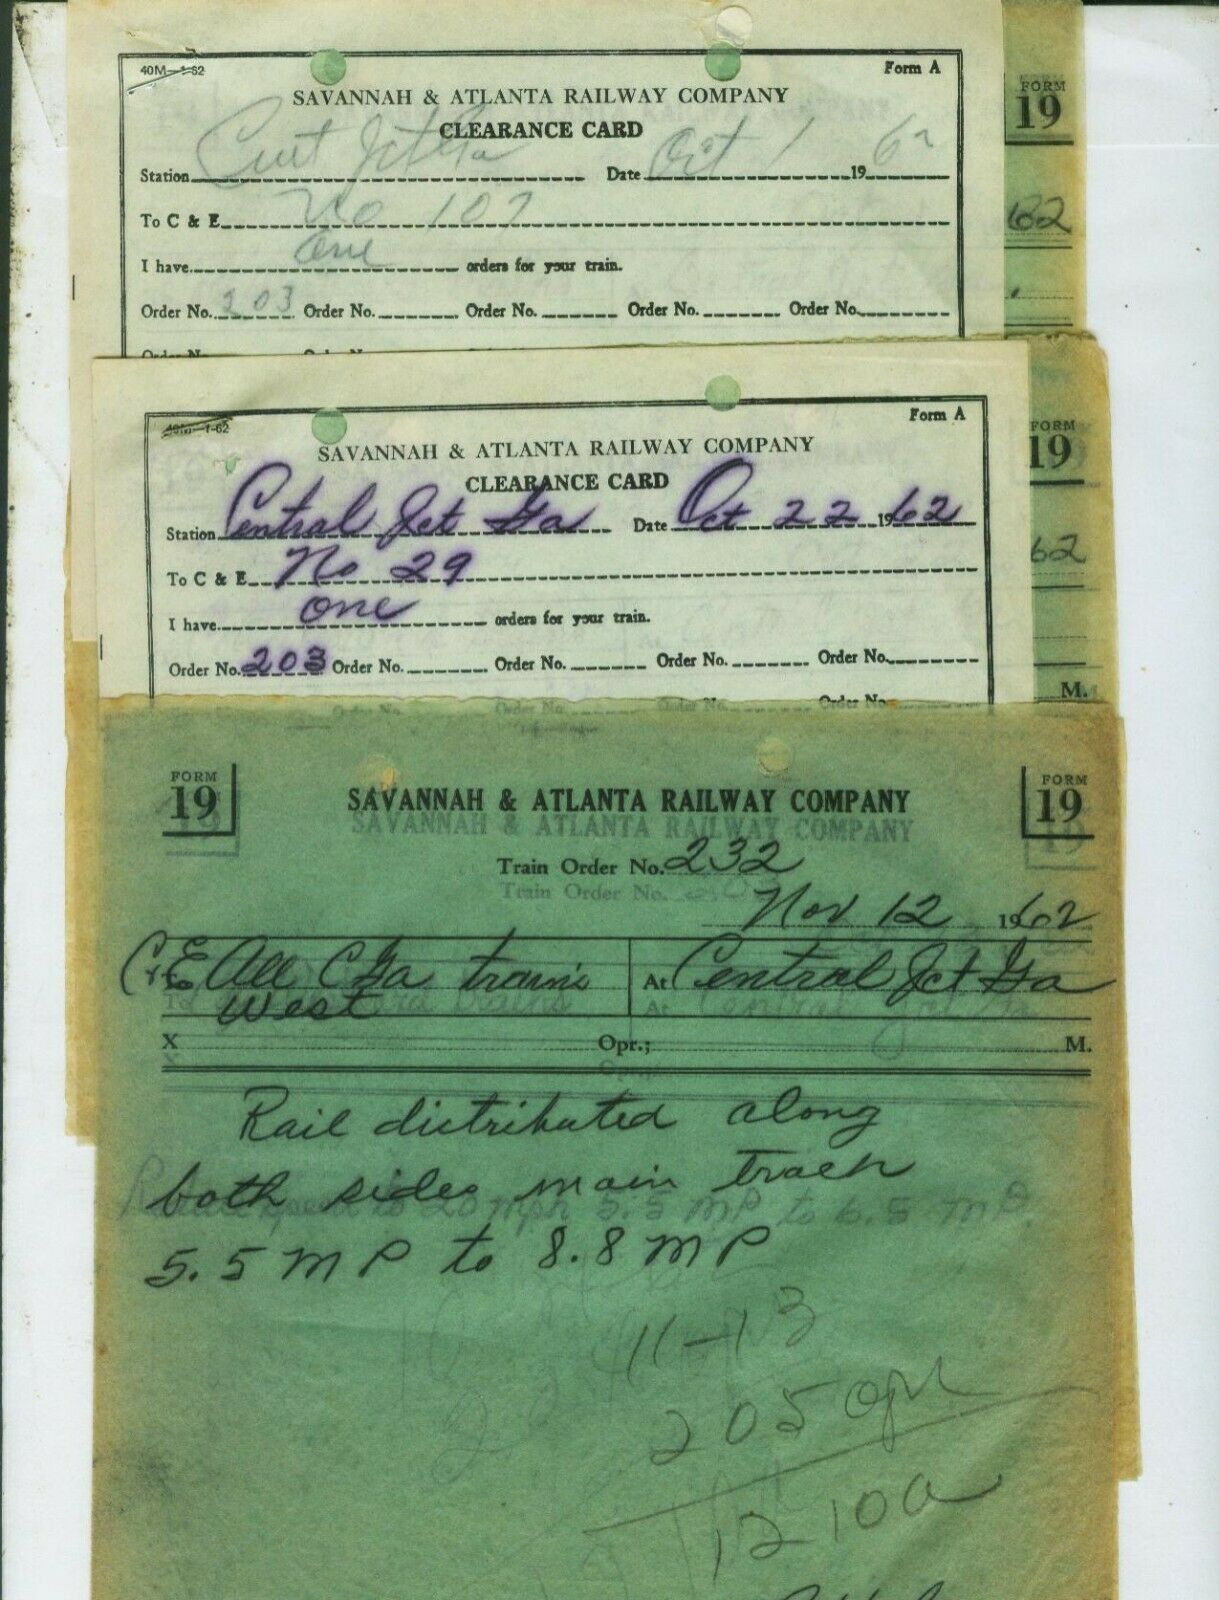 40M—1-62 Form A
FORM 19
SAVANNAH & ATLANTA RAILWAY COMPANY
CLEARANCE CARD
Station Cent Jct Ga Date Oct 1 1962
62
To C & E No 107
I have one orders for your train.
Order No. 203 Order No. Order No. Order No. Order No.
40M—1-62 Form A
FORM 19
SAVANNAH & ATLANTA RAILWAY COMPANY
CLEARANCE CARD
Station Central Jct Ga Date Oct 22 1962
62
To C & E No 29
I have one orders for your train.
Order No. 203 Order No. Order No. Order No. Order No.
M.
Order No. Order No. Order No. Order No.
FORM 19
SAVANNAH & ATLANTA RAILWAY COMPANY
FORM 19
Train Order No. 232
Nov 12 1962
C & E All C Ga trains West At Central Jct Ga
X Opr.; M.
Rail distributed along
both sides main track
5.5 M P to 8.8 M P
11-13
205 opr
1210a